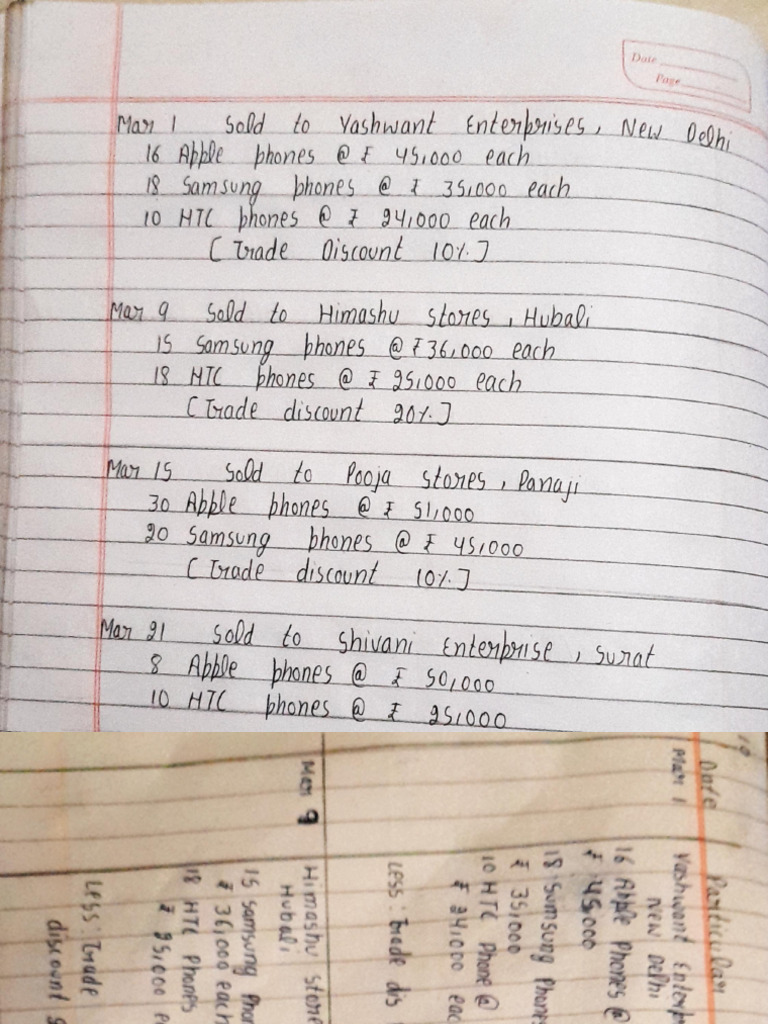 Date
Page
Mar 1 Sold to Yashwant Enterprises, New Delhi
16 Apple phones @ ₹ 45,000 each
18 Samsung phones @ ₹ 35,000 each
10 HTC phones @ ₹ 24,000 each
[Trade Discount 10%]
Mar 9 Sold to Himashu stores, Hubali
15 Samsung phones @ ₹ 36,000 each
18 HTC phones @ ₹ 25,000 each
[Trade discount 20%]
Mar 15 Sold to Pooja stores, Panaji
30 Apple phones @ ₹ 51,000
20 Samsung phones @ ₹ 45,000
[Trade discount 10%]
Mar 21 Sold to Shivani Enterprise, Surat
8 Apple phones @ ₹ 50,000
10 HTC phones @ ₹ 25,000
Date Particular
Mar 1 Yashwant Enterp
New Delhi
16 Apple Phones @
₹ 45,000
18 Sumsung Phones
₹ 35,000
10 HTC Phone @
₹ 24,000 eac
Less: Trade dis
Mar 9 Himashu Store
Hubali
15 Samsung Phon
₹ 36,000 each
18 HTC Phones
₹ 25,000 e
Less: Trade
discount